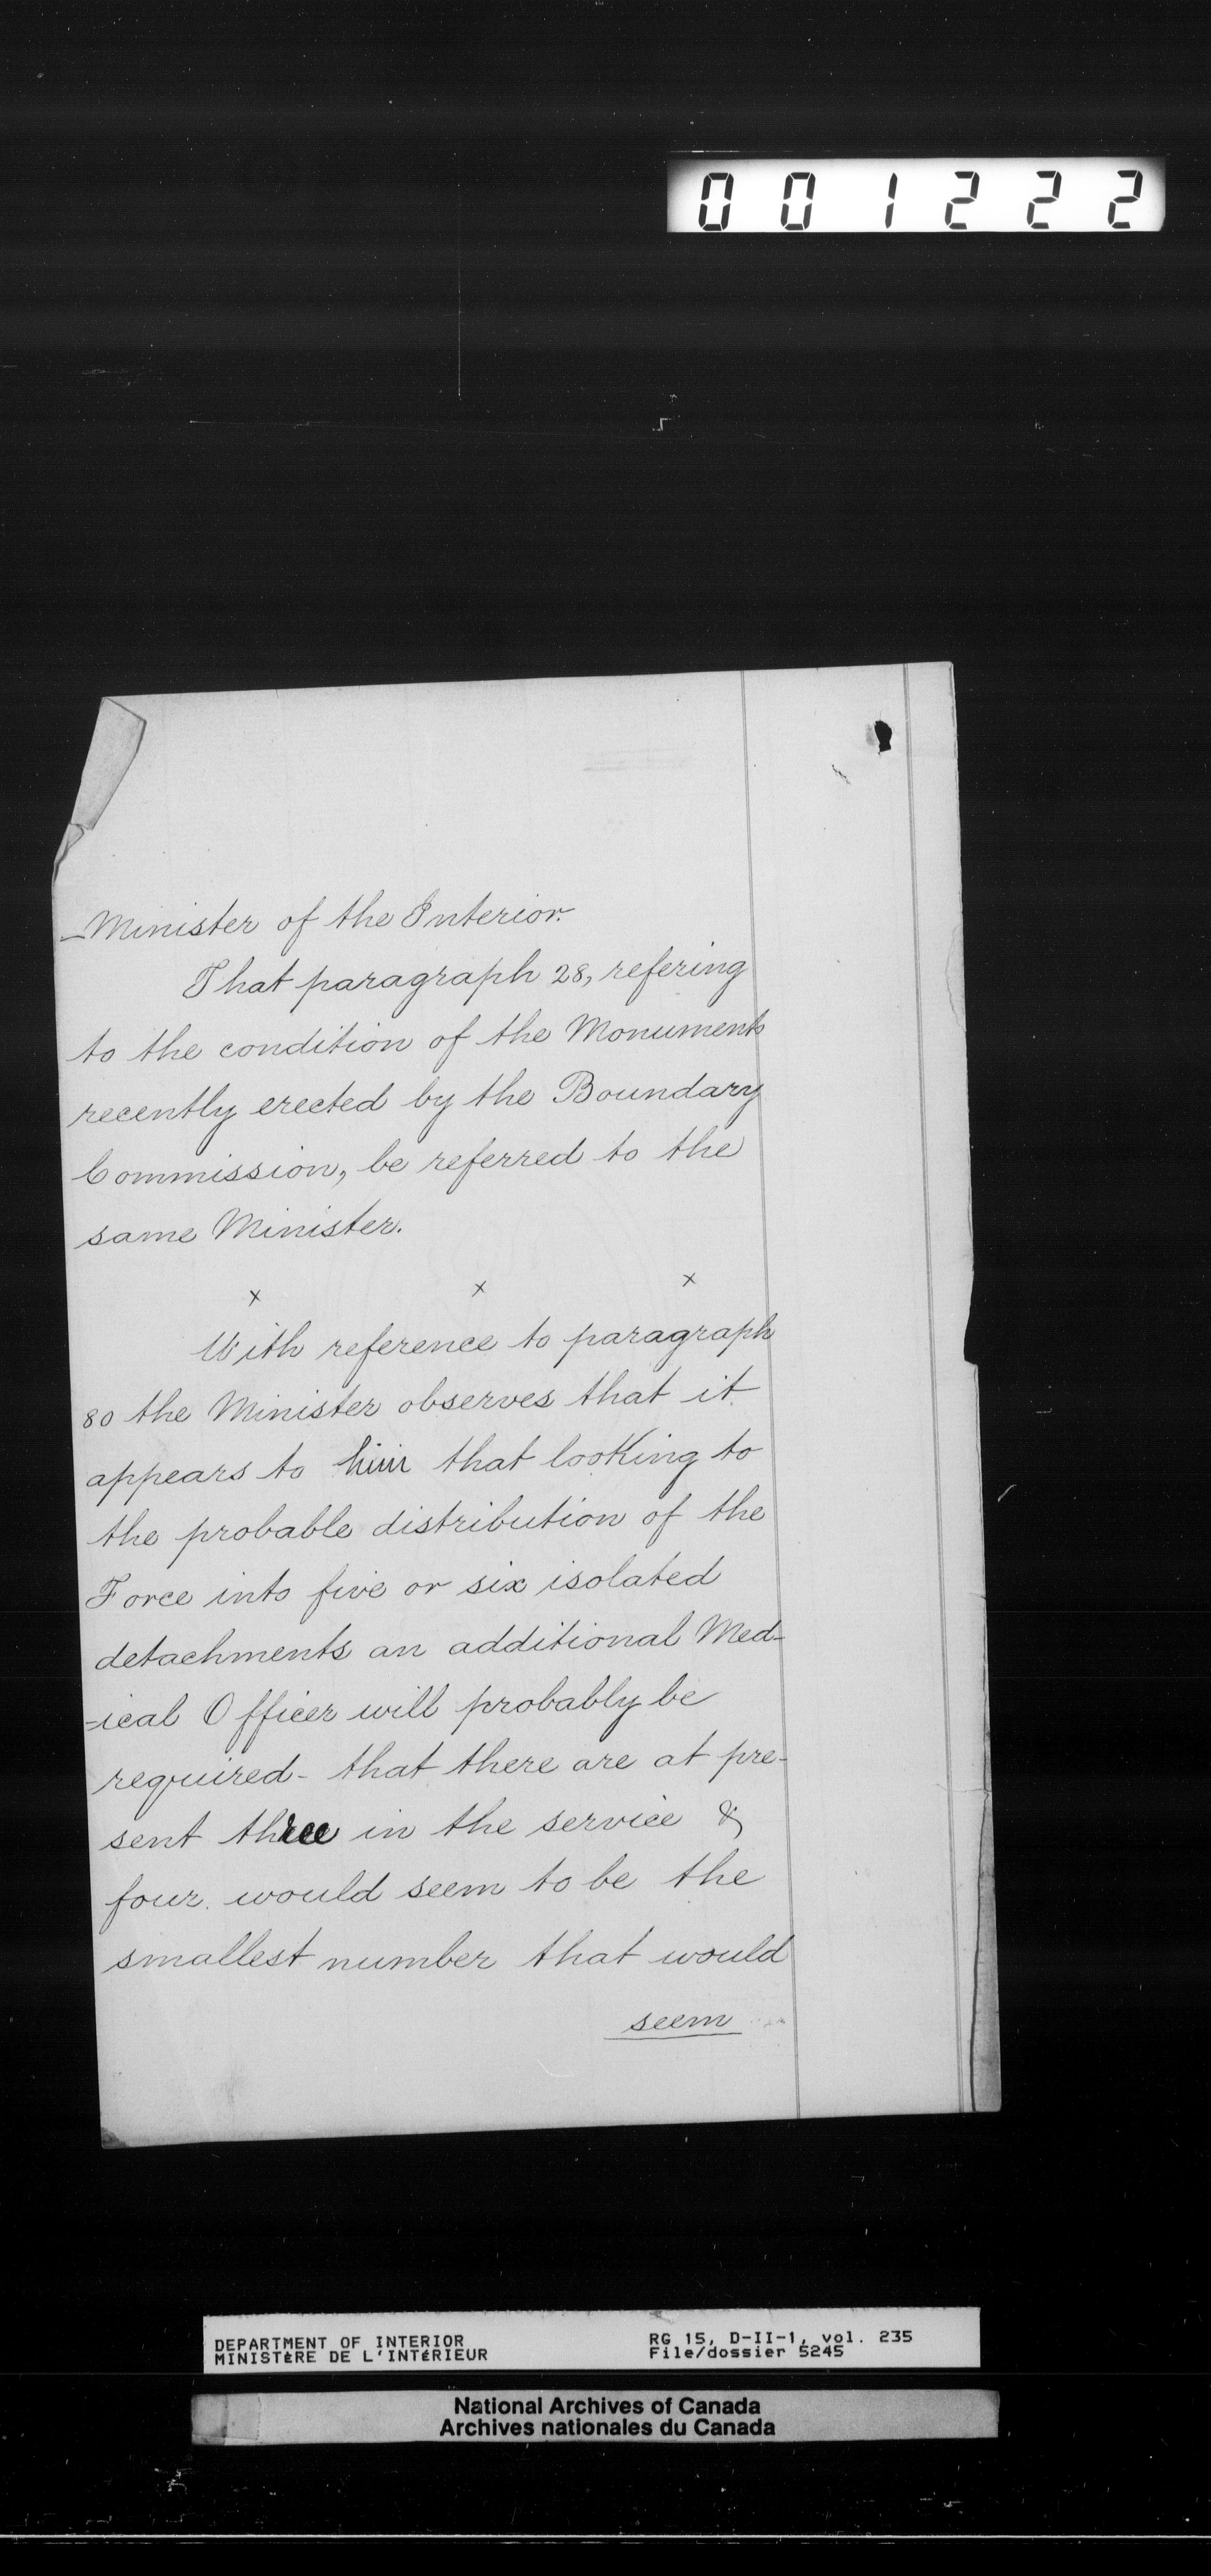 001222
Minister of the Interior.
That paragraph 28, refering
to the condition of the Monuments
recently erected by the Boundary
Commission, be referred to the
same Minister.
x x x
With reference to paragraph
80 the Minister observes that it
appears to him that looking to
the probable distribution of the
Force into five or six isolated
detachments an additional Med-
-ical Officer will probably be
required - that there are at pre-
sent three in the service &
four would seem to be the
smallest number that would
seem
DEPARTMENT OF INTERIOR
MINISTÈRE DE L'INTÉRIEUR
RG 15, D-II-1, vol. 235
File/dossier 5245
National Archives of Canada
Archives nationales du Canada